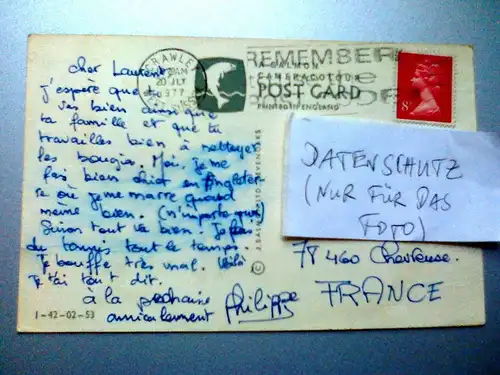 CRAWLEY
20 JLY
1977
REMEMBER
A SALMON
CAMERACOLOUR
POST CARD
PRINTED IN ENGLAND
8½
cher Laurent
j'espère que tu
vas bien ainsi que
ta famille et que tu
travailles bien à nettoyer
les bougies. Moi, je me
fais bien chier en Angleterre
où je me marre quand
même bien. (n'importe quoi)
Sinon tout va bien. Je fais
du tennis tout le temps.
Je bouffe très mal. Voilà
je t'ai tout dit.
à la prochaine
amicalement Philippe
1-42-02-53
© J. SALMON LTD SEVENOAKS
DATENSCHUTZ
(NUR FÜR DAS
FOTO)
78 460 Chevreuse.
FRANCE